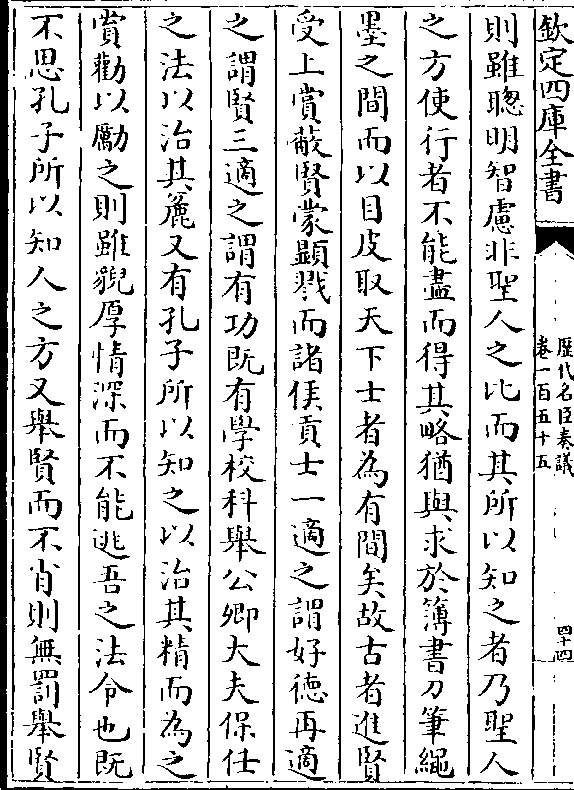 欽定四庫全書
歴代名臣奏議
卷一百五十五
四十四
則雖聰明智慮非聖人之比而其所以知之者乃聖人
之方使行者不能盡而得其略猶與求於簿書刀筆繩
墨之間而以目皮取天下士者為有間矣故古者進賢
受上賞蔽賢蒙顯戮而諸侯貢士一適之謂好徳再適
之謂賢三適之謂有功既有學校科舉公卿大夫保任
之法以治其麄又有孔子所以知之以治其精而為之
賞勸以勵之則雖貎厚情深而不能逃吾之法令也既
不思孔子所以知人之方又舉賢而不肖則無罰舉賢